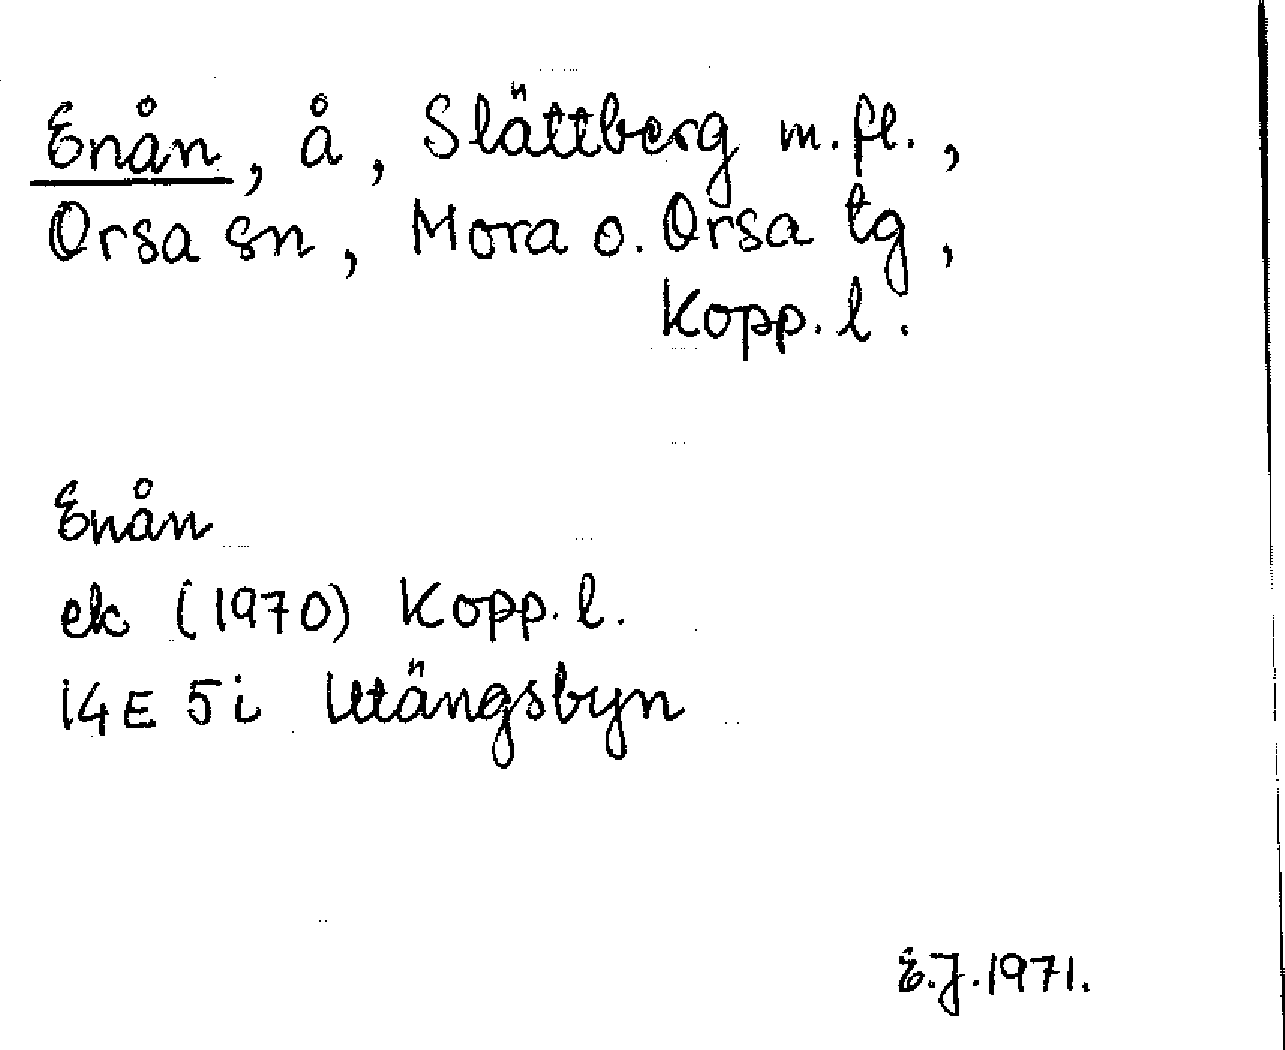 Enån, å, Slättberg m.fl.,
Orsa sn, Mora o. Orsa tg,
Kopp. l.
Enån
ek (1970) Kopp. l.
14E 5i Utängsbyn
E.J. 1971.